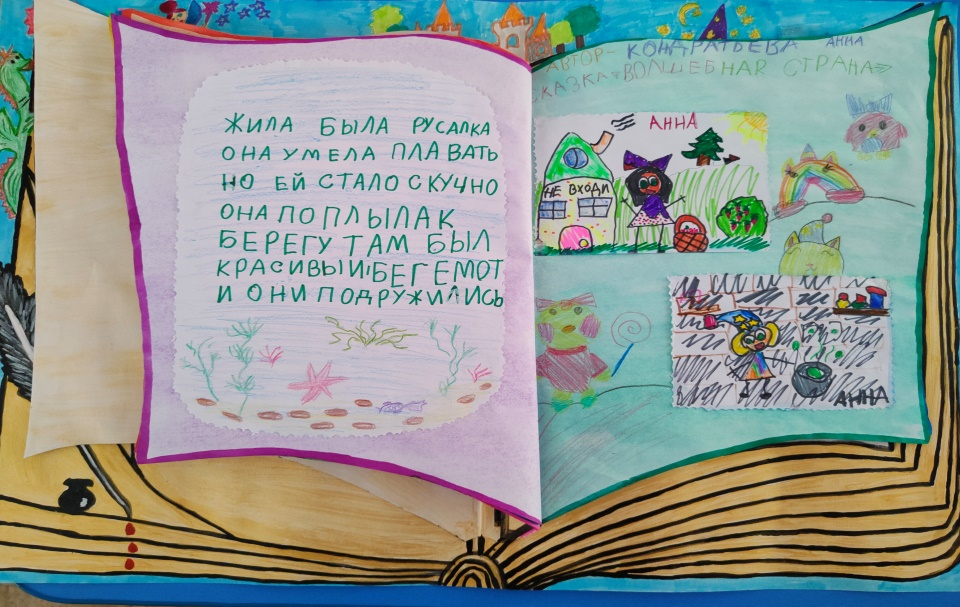 ЖИЛА БЫЛА РУСАЛКА
ОНА УМЕЛА ПЛАВАТЬ
НО ЕЙ СТАЛО СКУЧНО
ОНА ПОПЛЫЛА К
БЕРЕГУ ТАМ БЫЛ
КРАСИВЫЙ БЕГЕМОТ
И ОНИ ПОДРУЖИЛИСЬ
АВТОР - КОНДРАТЬЕВА АННА
СКАЗКА «ВОЛШЕБНАЯ СТРАНА»
АННА
НЕ ВХОДИ
АННА